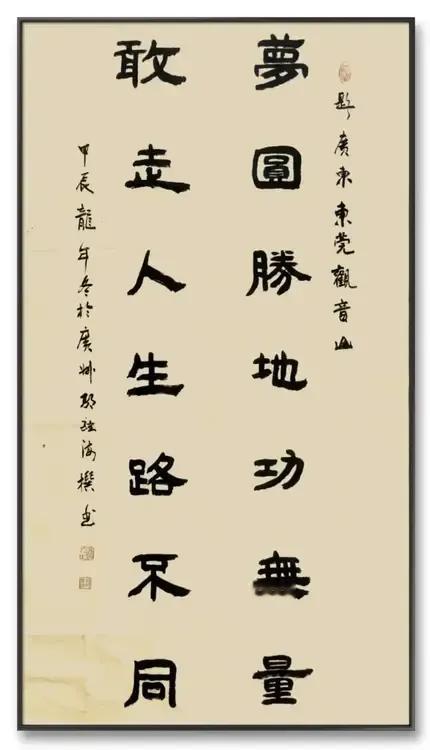 題廣東東莞觀音山
夢圓勝地功無量
敢走人生路不同
甲辰龍年冬於廣州鄧海撰書